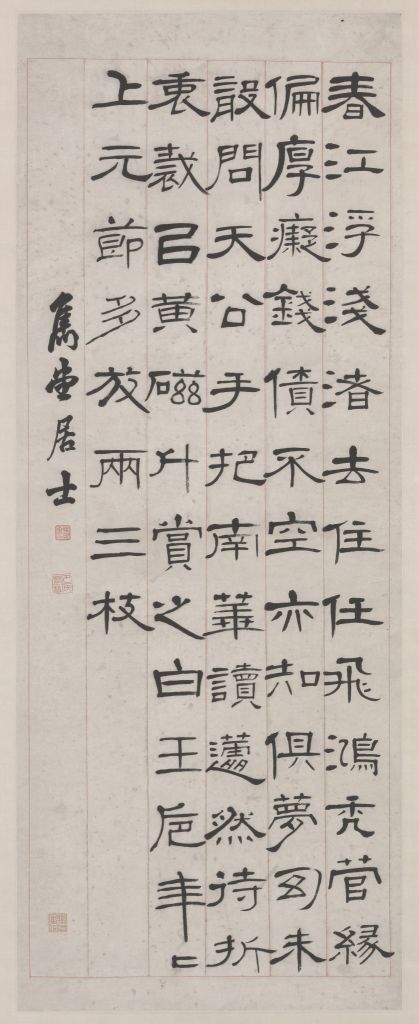 春江浮淺渚去住任飛鴻禿菅緣
偏厚癡錢債不空亦知俱夢幻未
敢問天公手把南華讀蘧然待折
衷裁㠯黃磁斗賞之白玉卮年二
上元節多放兩三枝
雋堂居士